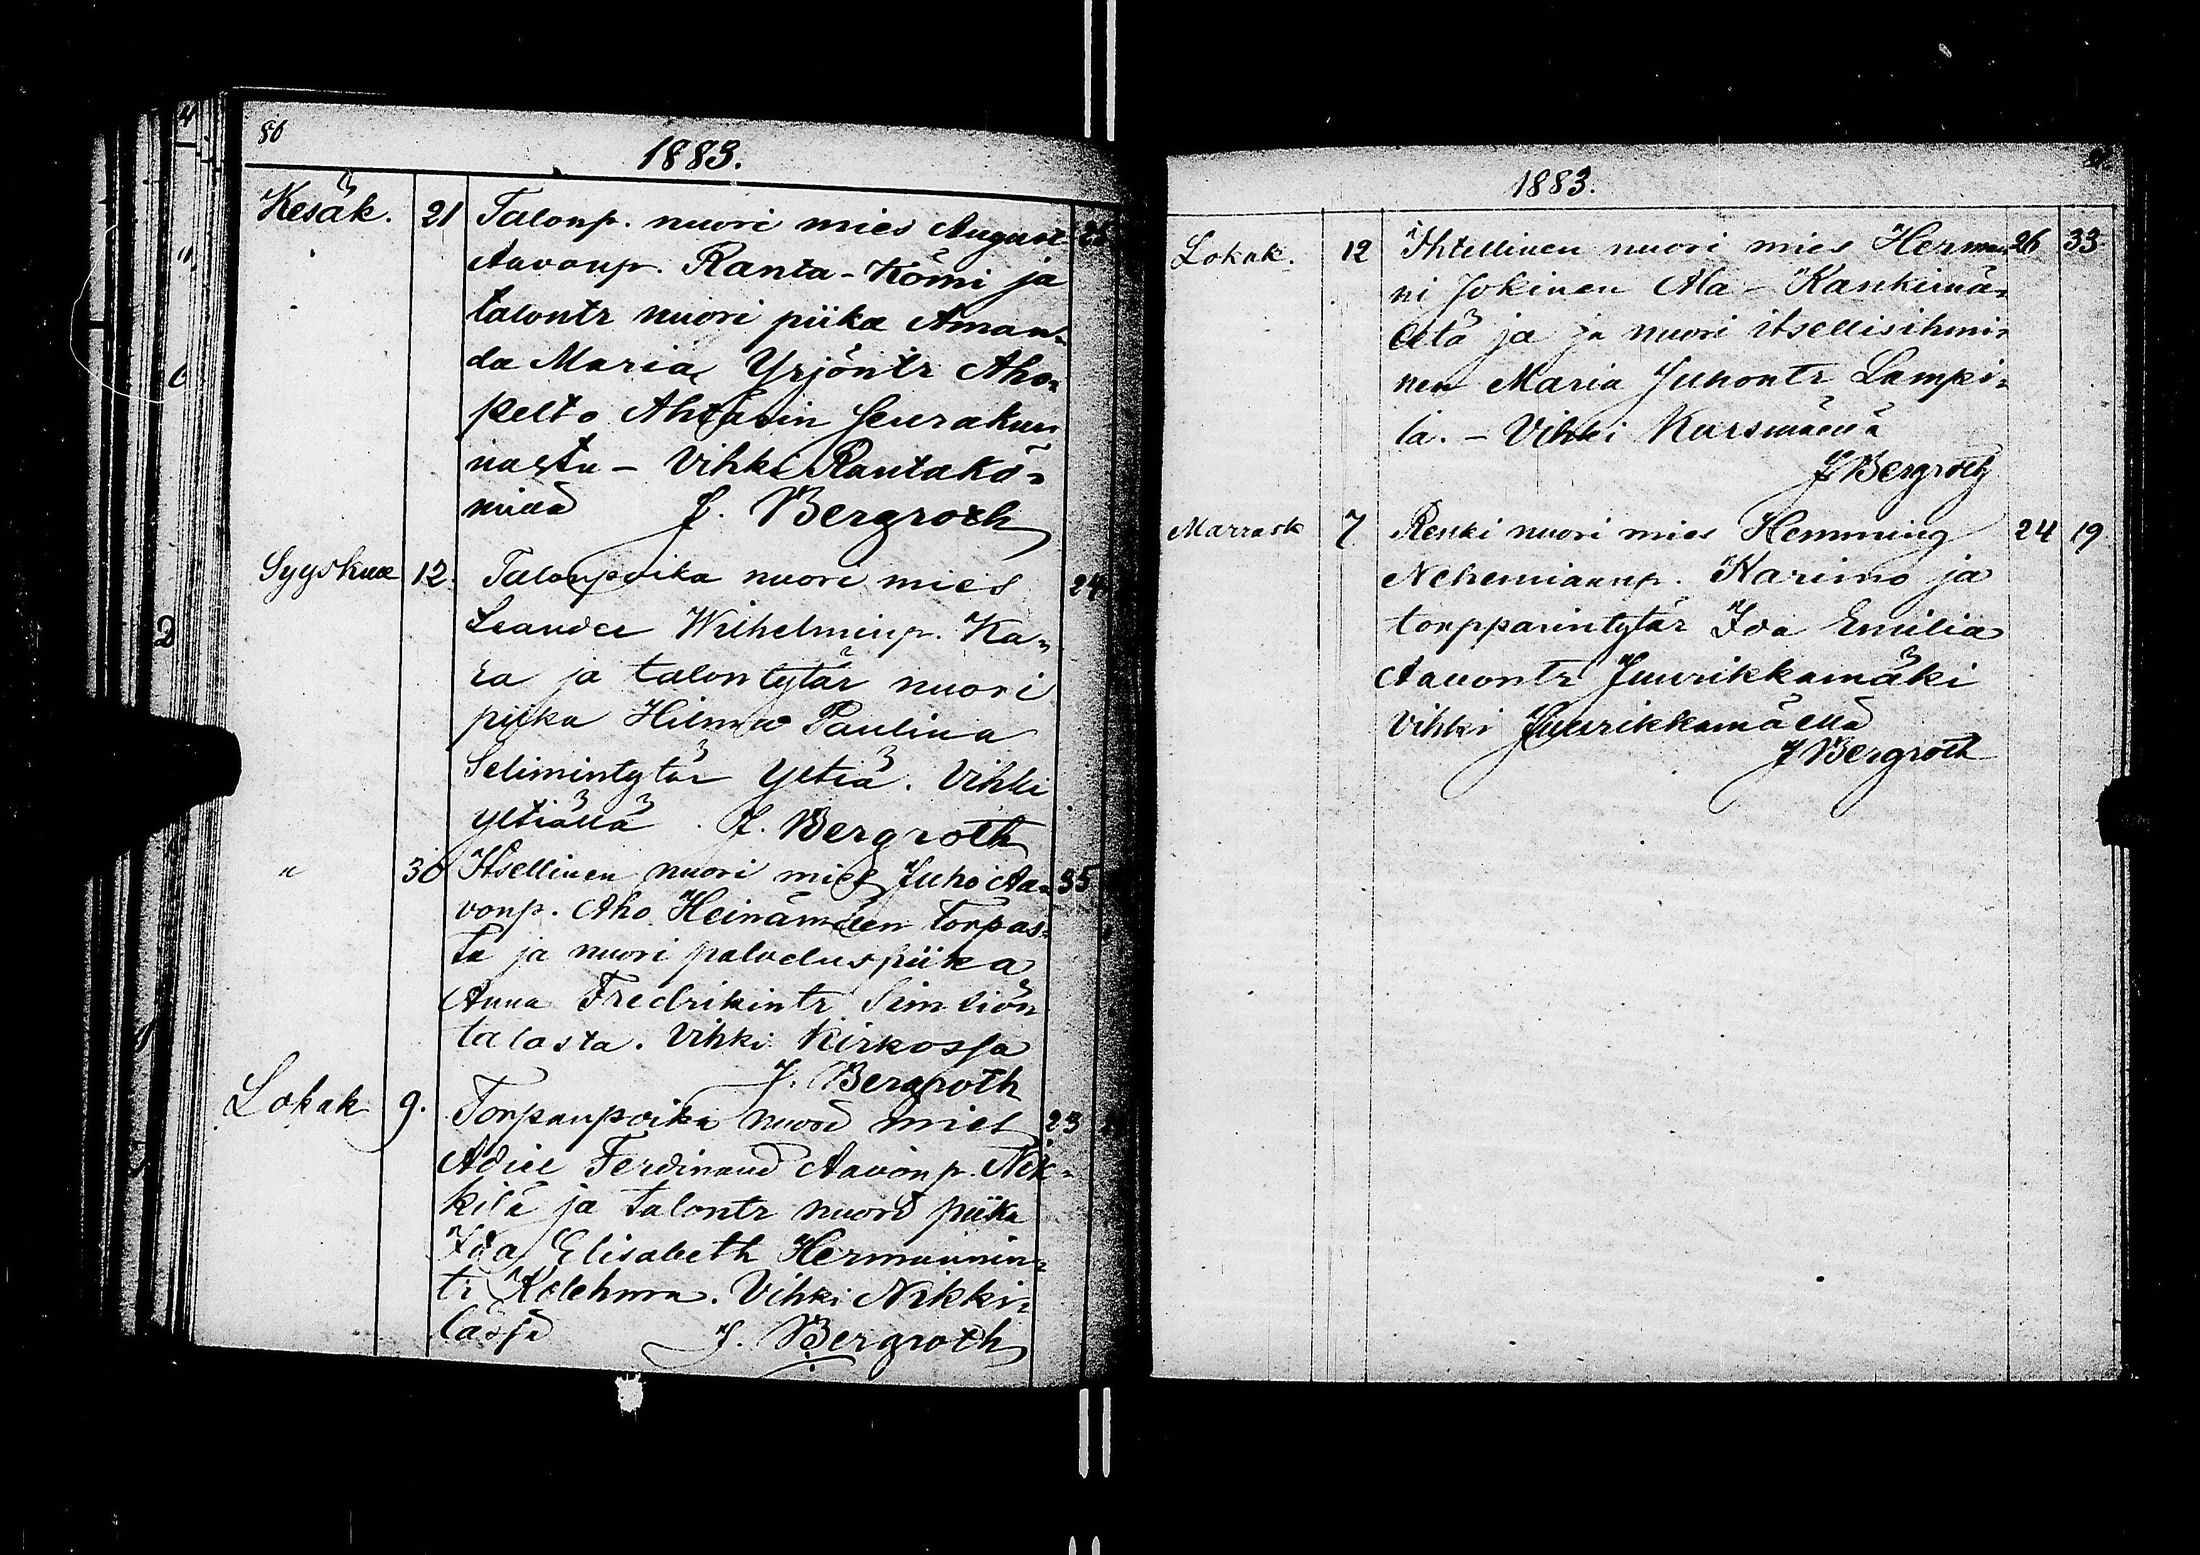 80
1883.
Kesäk. 21 Talonp. nuori mies August
Aavonp. Ranta-Kömi ja
talontr nuori piika Aman=
da Maria Yrjöntr Aho=
pelto Ahtärin seurakun
nasta - Vihki Rantakö=
missä J. Bergroth
Syyskuu 12. Talonpoika nuori mies 24
Leander Wilhelminp. Ka=
ra ja talontytär nuori
piika Hilma Paulina
Selimintytär Yltiä. Vihki
Yltiällä. J. Bergroth
" 30 Itsellinen nuori mies Juho Aa= 35
vonp. Aho Heinämäen torpas=
ta ja nuori palveluspiika
Anna Fredrikintr Similiön
talosta. Vihki Kirkossa
J. Bergroth
Lokak 9. Torpanpoika nuori mies 23
Ferdinand Aavonp. Nik=
kilä ja talontr nuori piika
Ida Elisabeth Hermannin=
tr Kolehma. Vihki Nikki=
lässä J. Bergroth
1883.
Lokak. 12 Ihtellinen nuori mies Herman= 26 33
ni Jokinen Ala-Kankimä=
eltä ja ja nuori itsellisihmi=
nen Maria Juhontr Lampi=
la. - Vihki
J Bergroth
Marrask 7 Renki nuori mies Hemming 24 19
Nehemiaanp. Karimo ja
torpparintytär Ida Emilia
Aavontr Juurikkamäki
Vihki Juurikkamäellä
J Bergroth